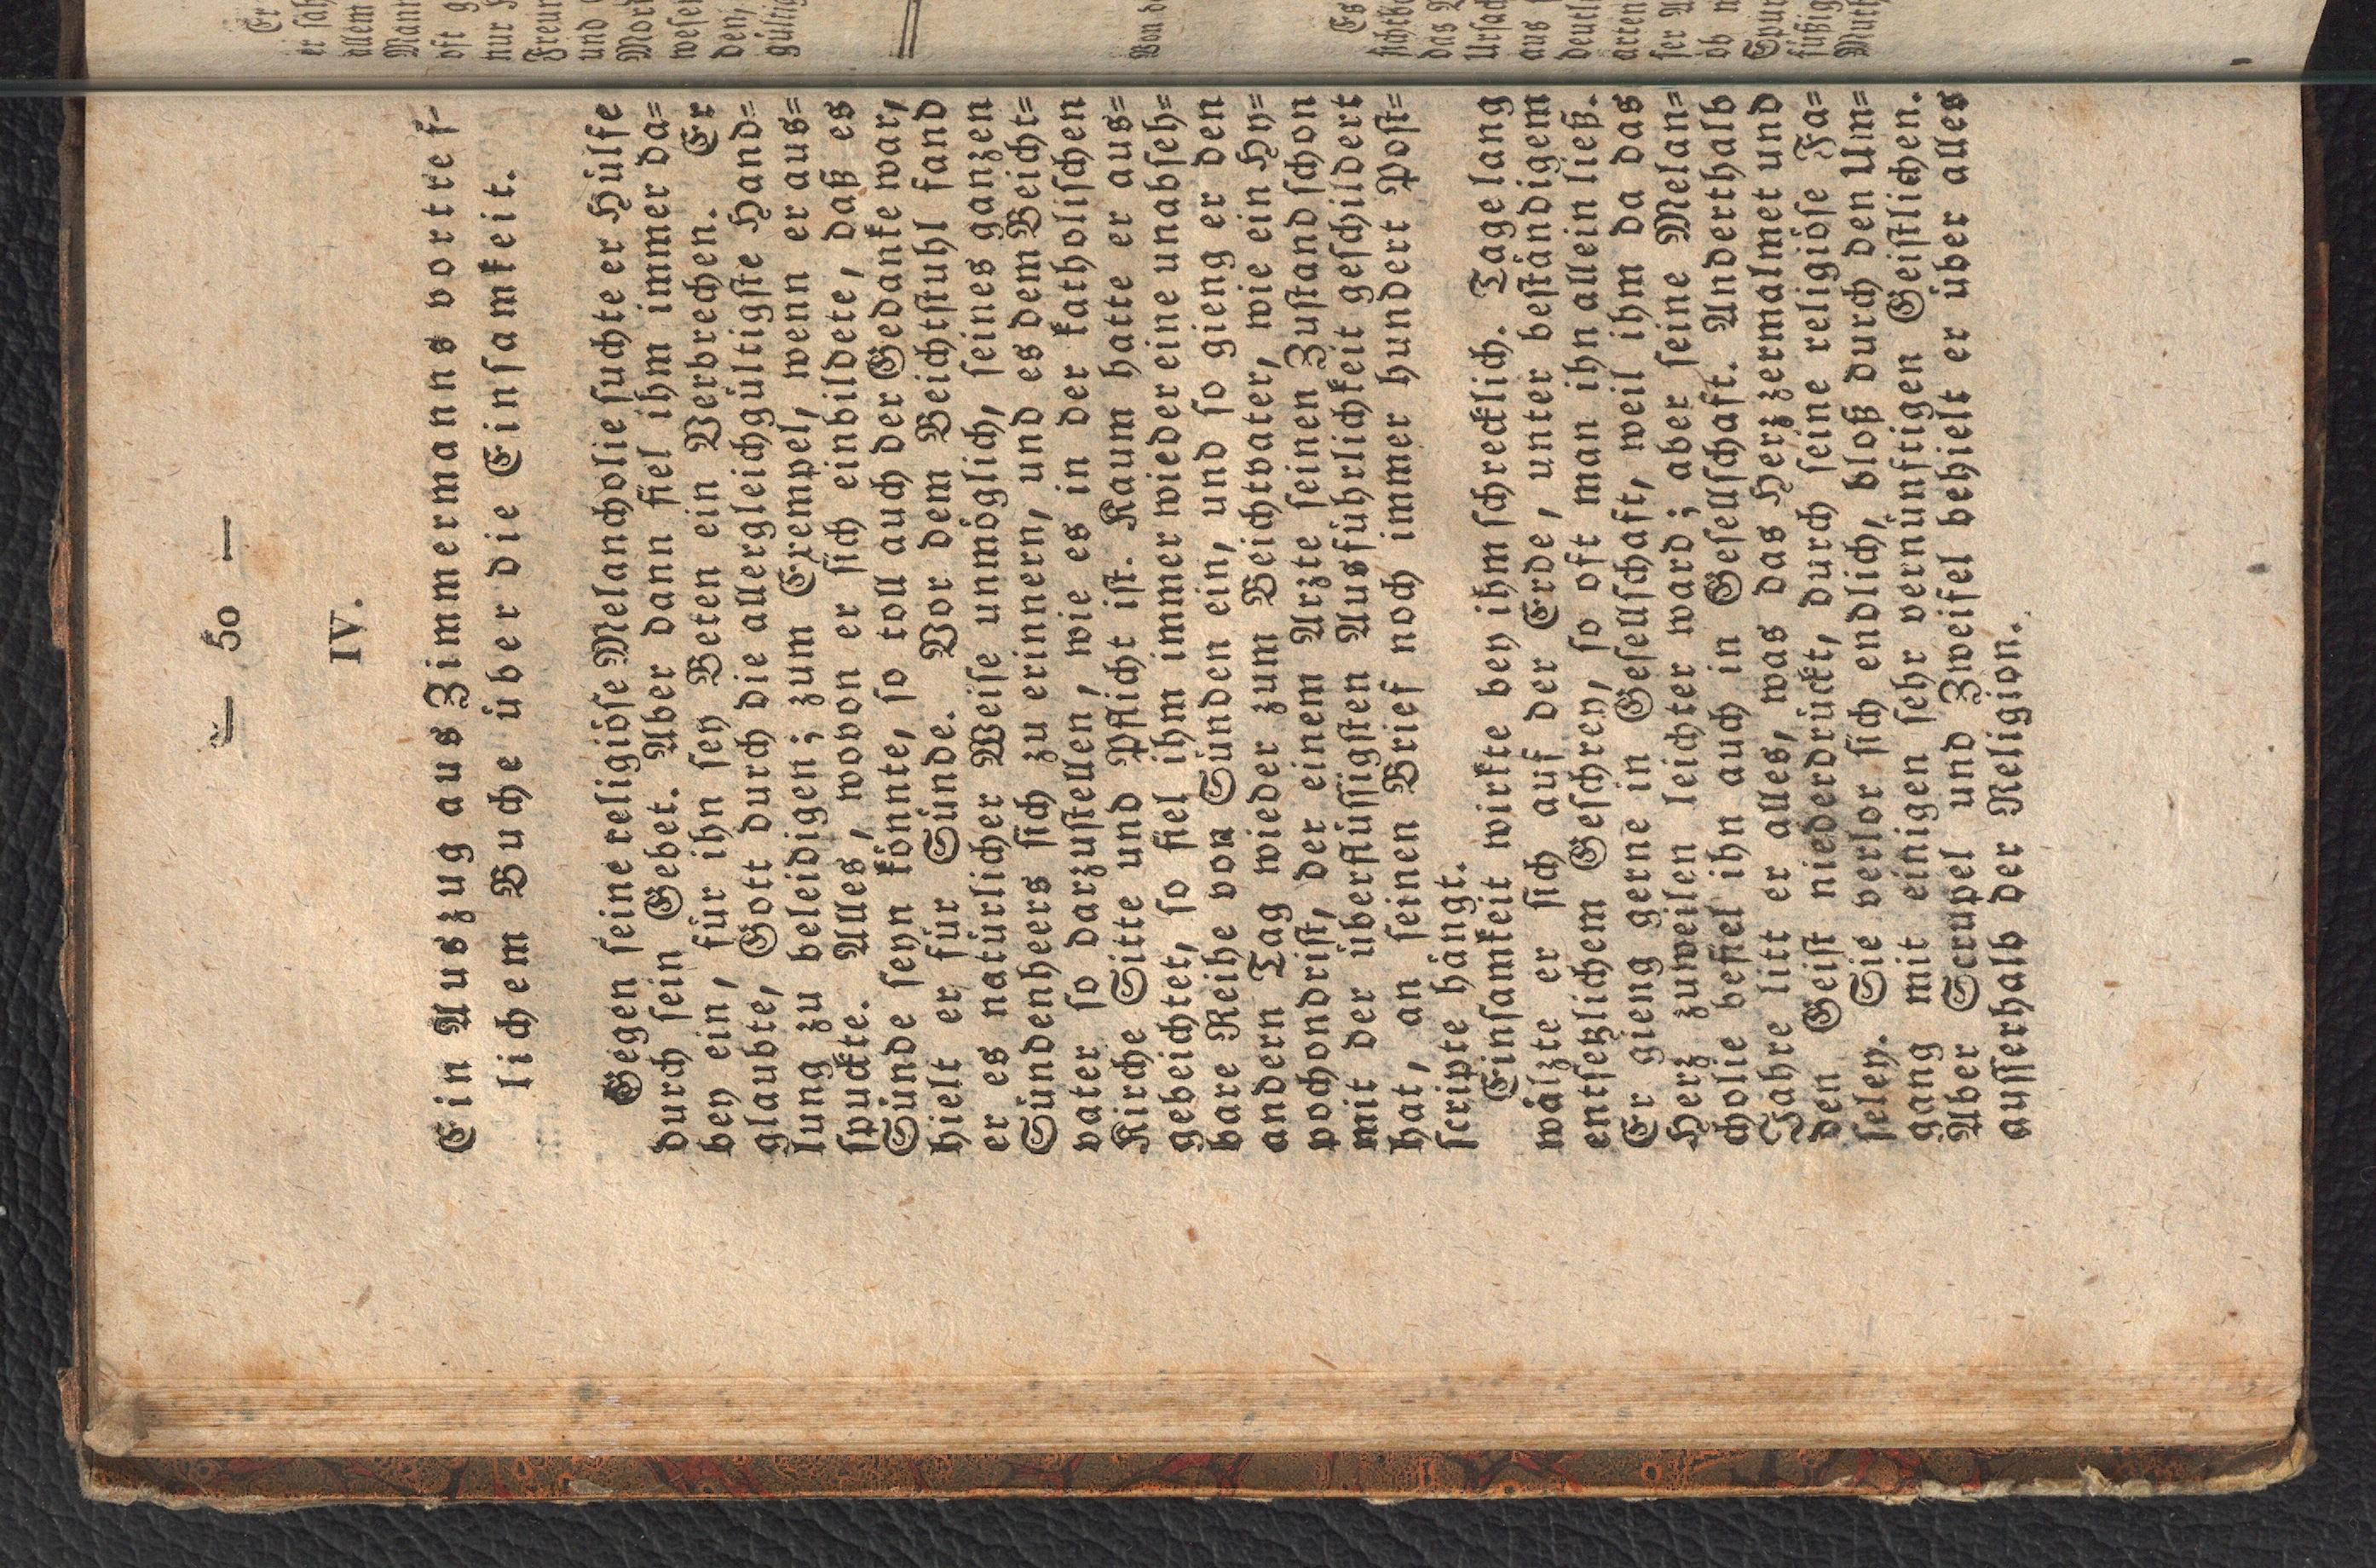 — 50 —
IV.
Ein Auszug aus Zimmermanns vortref-
lichem Buche über die Einsamkeit.
Gegen seine religiöse Melancholie suchte er Hülfe
durch sein Gebet. Aber dann fiel ihm immer da=
bey ein, für ihn sey Beten ein Verbrechen. Er
glaubte, Gott durch die allergleichgültigste Hand=
lung zu beleidigen; zum Exempel, wenn er aus=
spuckte. Alles, wovon er sich einbildete, daß es
Sünde seyn könnte, so toll auch der Gedanke war,
hielt er für Sünde. Vor dem Beichtstuhl fand
er es natürlicher Weise unmöglich, seines ganzen
Sündenheers sich zu erinnern, und es dem Beicht=
vater so darzustellen, wie es in der katholischen
Kirche Sitte und Pflicht ist. Kaum hatte er aus=
gebeichtet, so fiel ihm immer wieder eine unabseh=
bare Reihe von Sünden ein, und so gieng er den
andern Tag wieder zum Beichtvater, wie ein Hy=
pochondrist, der einem Arzte seinen Zustand schon
mit der überflüssigsten Ausführlichkeit geschildert
hat, an seinen Brief noch immer hundert Post=
scripte hängt.
Einsamkeit wirkte bey ihm schrecklich. Tage lang
wälzte er sich auf der Erde, unter beständigem
entsetzlichem Geschrey, so oft man ihn allein ließ.
Er gieng gerne in Gesellschaft, weil ihm da das
Herz zuweilen leichter ward; aber seine Melan=
cholie befiel ihn auch in Gesellschaft. Anderthalb
Jahre litt er alles, was das Herz zermalmet und
den Geist niederdrückt, durch seine religiöse Fa=
seley. Sie verlor sich endlich, bloß durch den Um=
gang mit einigen sehr vernünftigen Geistlichen.
Aber Scrupel und Zweifel behielt er über alles
ausserhalb der Religion.
Er
er sah
allem
Mann
oft g
nur
Freun
und
Mord
wesen
den,
gültig
Von de
Es
sichtba
das
Ursach
aus
deutli
arten
ser
ob
Spur
füßig
Muth